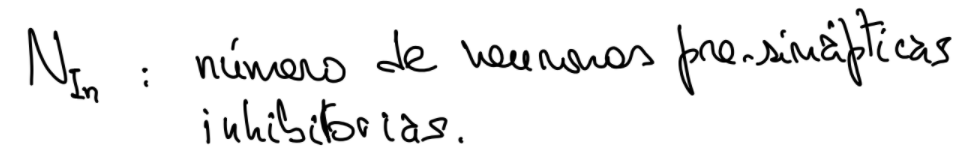 N_In : número de neuronas pre-sinápticas
inhibitorias.